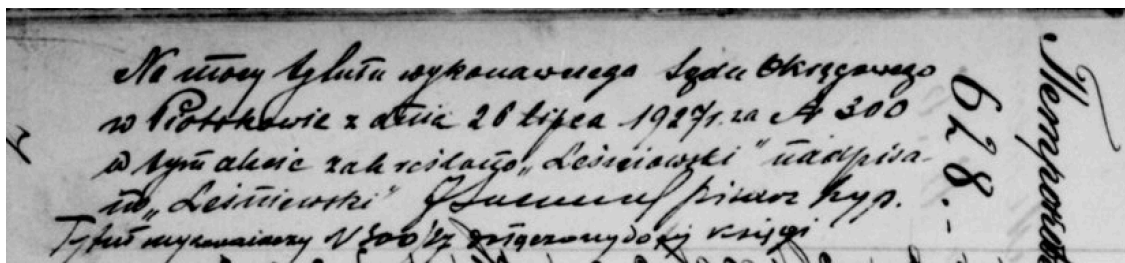 Na mocy tytułu wykonawczego Sądu Okręgowego
w Piotrkowie z dnia 26 lipca 1927 r. za № 300
w tym akcie zakreślono „Leśniowski" nadpisa-
no „Leśniewski" pisarz hyp.
Tytuł wykonawczy N 300/27 dołączony do tej księgi
628.-